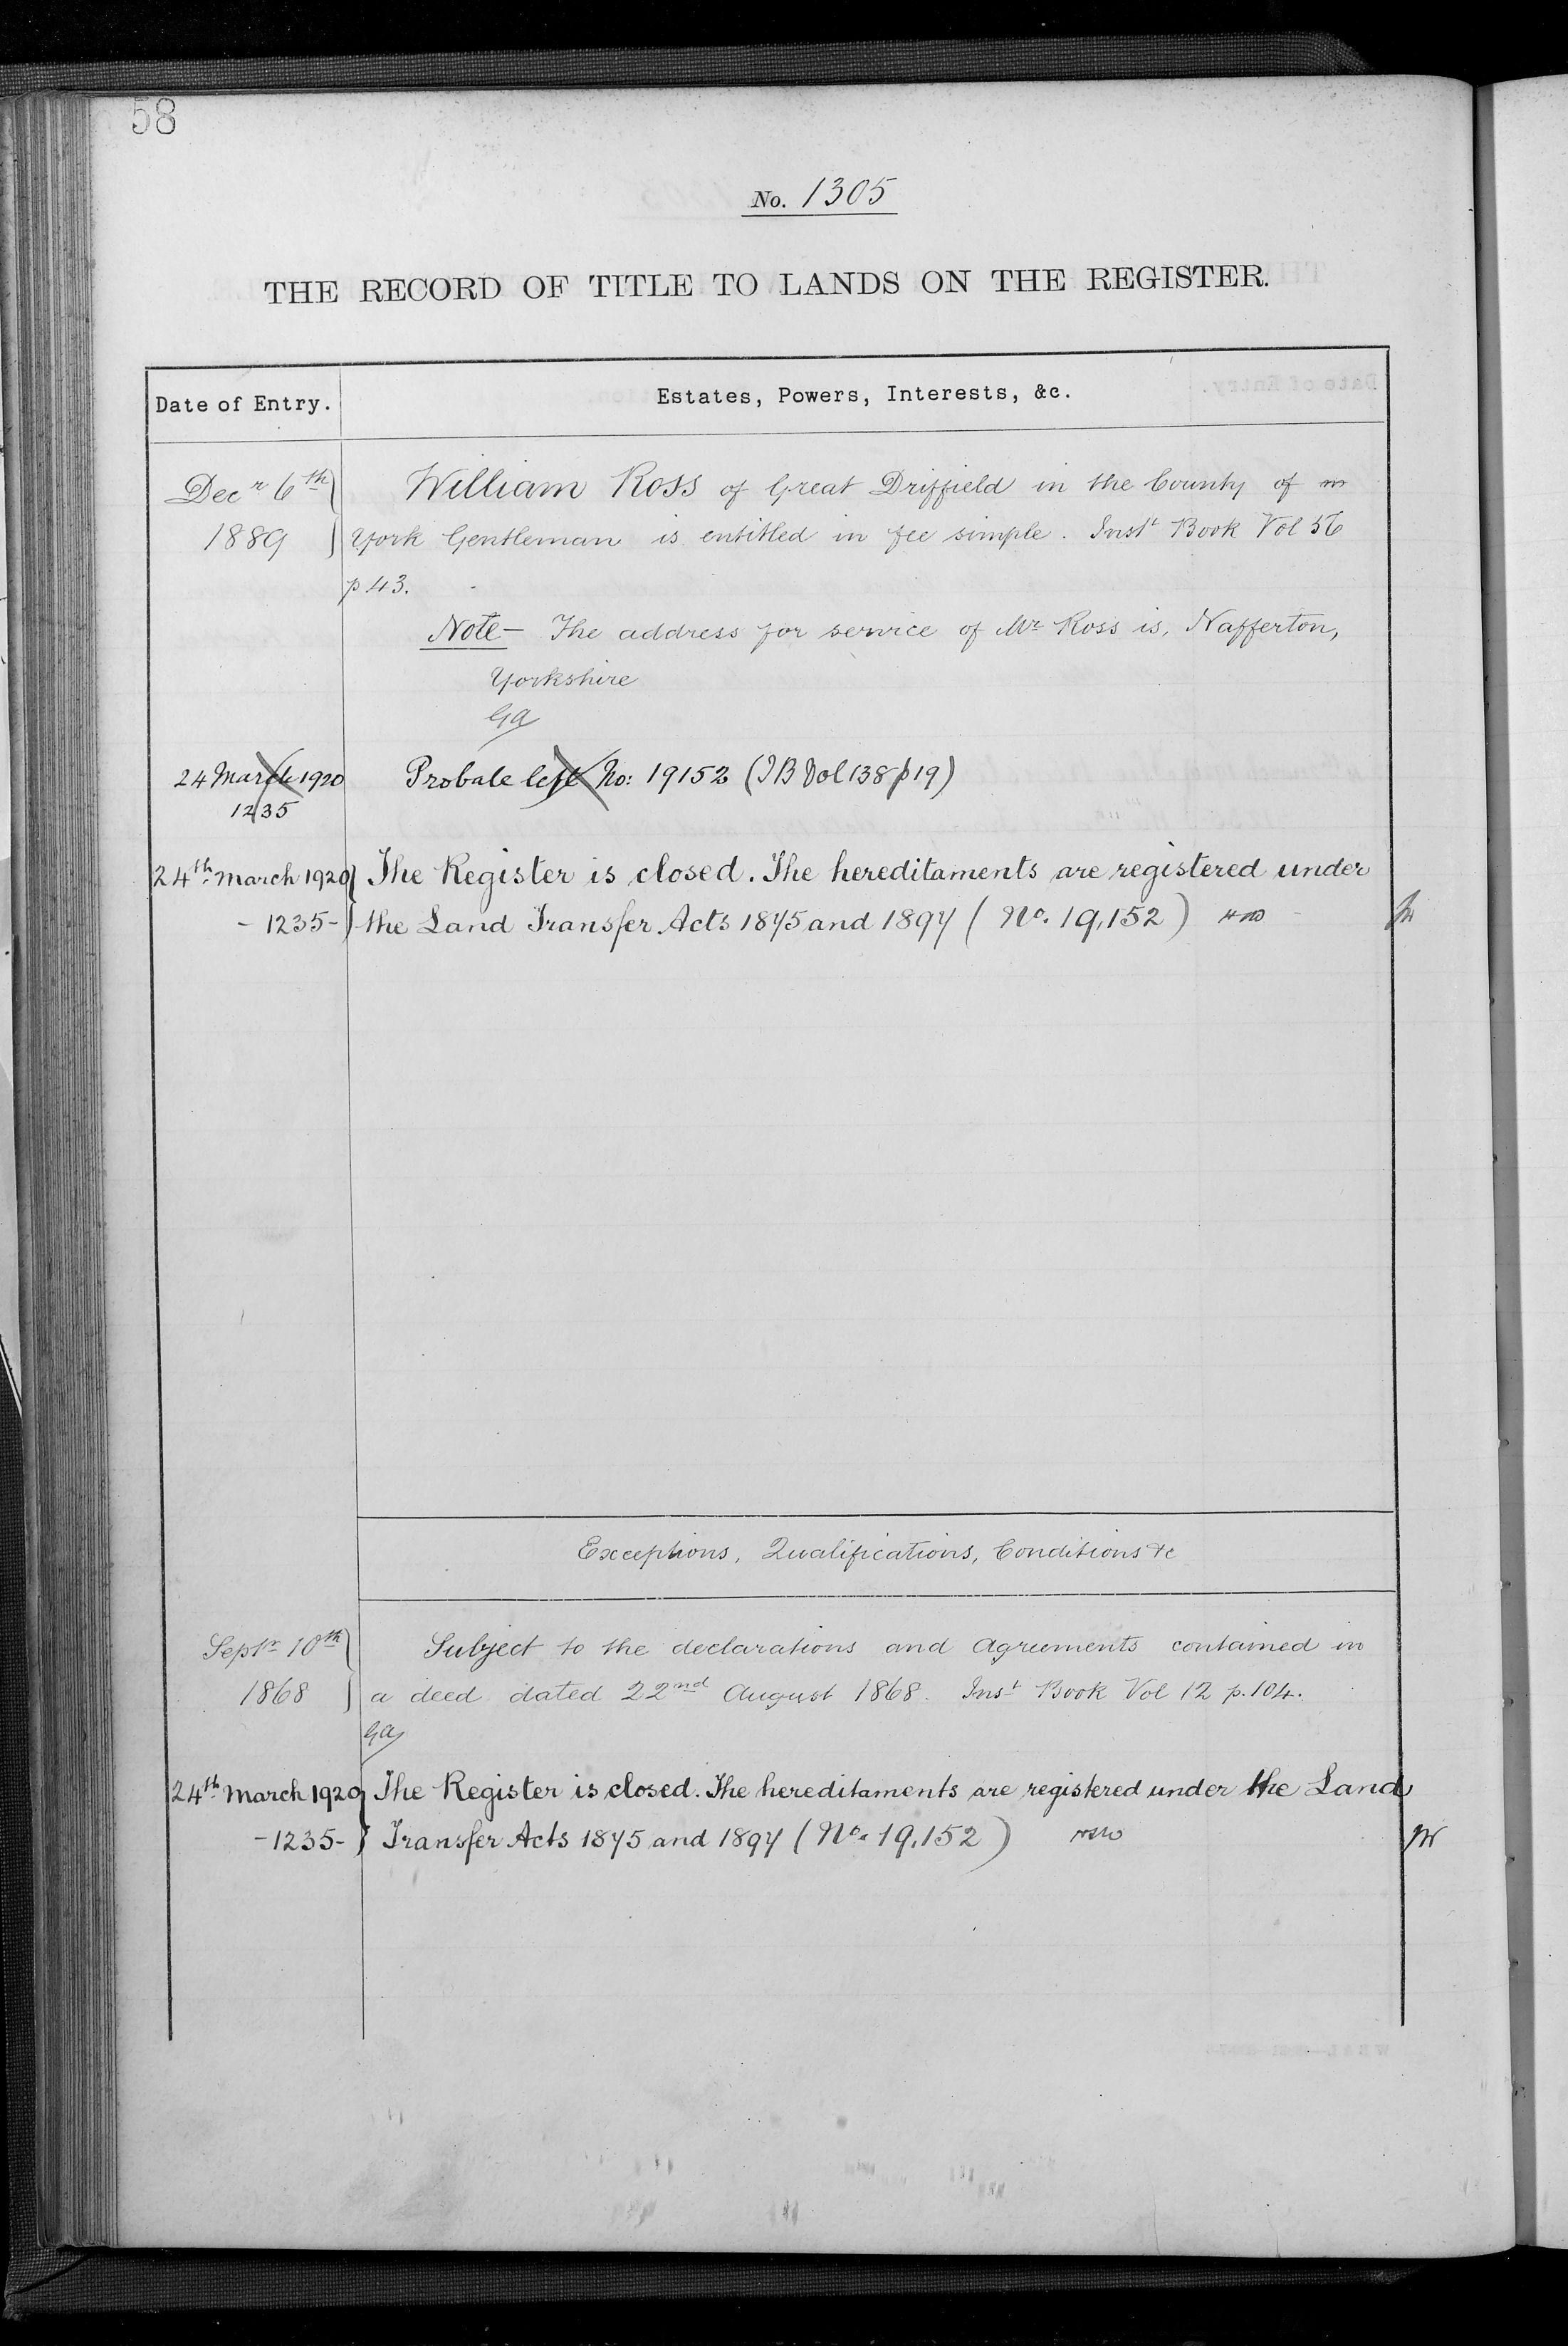 58
No. 1305
THE RECORD OF TITLE TO LANDS ON THE REGISTER.
Date of Entry. Estates, Powers, Interests, &c.
Decr 6th William Ross of Great Driffield in the County of
1889 York Gentleman is entitled in fee simple. Inst Book Vol 56
p 43.
Note – The address for service of Mr Ross is, Nafferton,
Yorkshire
GA
24 March 1920 Probate left No: 19152 (IB Vol 138 p 19)
1235
24th March 1920 The Register is closed. The hereditaments are registered under
- 1235 - the Land Transfer Acts 1875 and 1897 (No. 19,152)
Exceptions, Qualifications, Conditions &c
Septr 10th Subject to the declarations and Agreements contained in
1868 a deed dated 22nd August 1868. Inst Book Vol 12 p. 104.
GA
24th March 1920 The Register is closed. The hereditaments are registered under the Land
- 1235 - Transfer Acts 1875 and 1897 (No. 19,152)